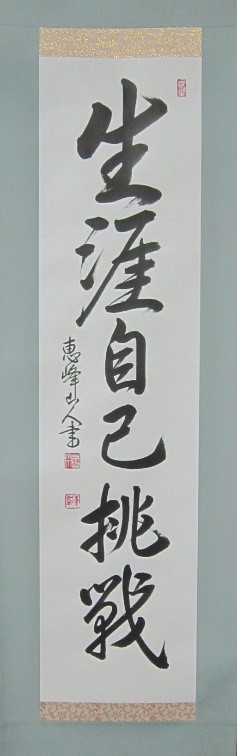 生涯自己挑戦
恵峰山人書